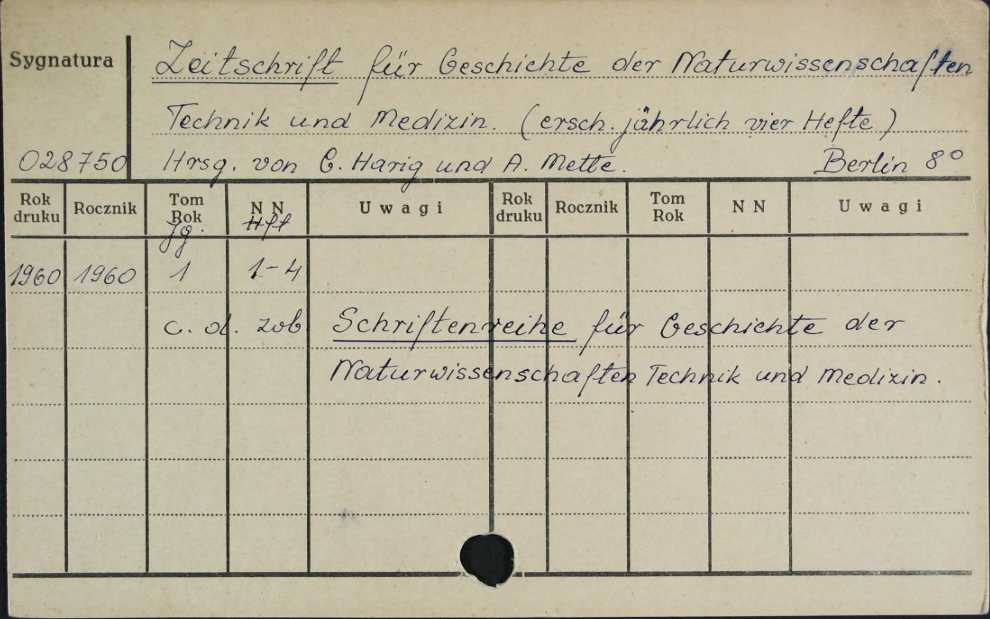 Sygnatura
Zeitschrift für Geschichte der Naturwissenschaften
Technik und Medizin. (ersch. jährlich vier Hefte)
028750 Hrsg. von G. Harig und A. Mette. Berlin 8°
Rok druku Rocznik Tom Rok N N Uwagi Rok druku Rocznik Tom Rok N N Uwagi
Jg. Hft
1960 1960 1 1-4
c. d. zob Schriftenreihe für Geschichte der
Naturwissenschaften Technik und Medizin.